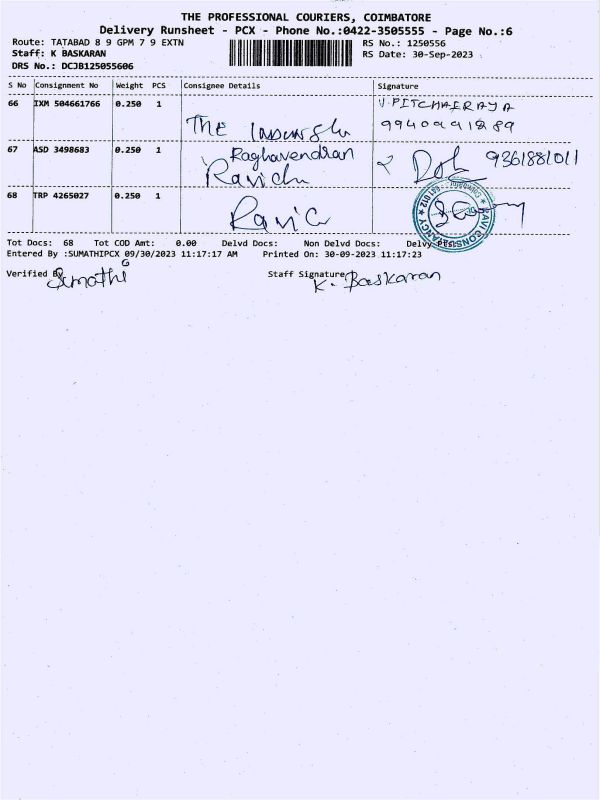 THE PROFESSIONAL COURIERS, COIMBATORE
Delivery Runsheet - PCX - Phone No.:0422-3505555 - Page No.:6
Route: TATABAD 8 9 GPM 7 9 EXTN
RS No.: 1250556
Staff: K BASKARAN
RS Date: 30-Sep-2023
DRS No.: DCJB125055606
S No Consignment No Weight PCS Consignee Details Signature
66 IXM 504661766 0.250 1 V.PITCHAIRAYA
The 9940991289
67 ASD 3498683 0.250 1 Raghavendran 9361881011
Ravichu
68 TRP 4265027 0.250 1
Tot Docs: 68 Tot COD Amt: 0.00 Delvd Docs: Non Delvd Docs: Delvy
Entered By :SUMATHIPCX 09/30/2023 11:17:17 AM Printed On: 30-09-2023 11:17:23
Verified By Sumathi G Staff Signature K. Baskaran